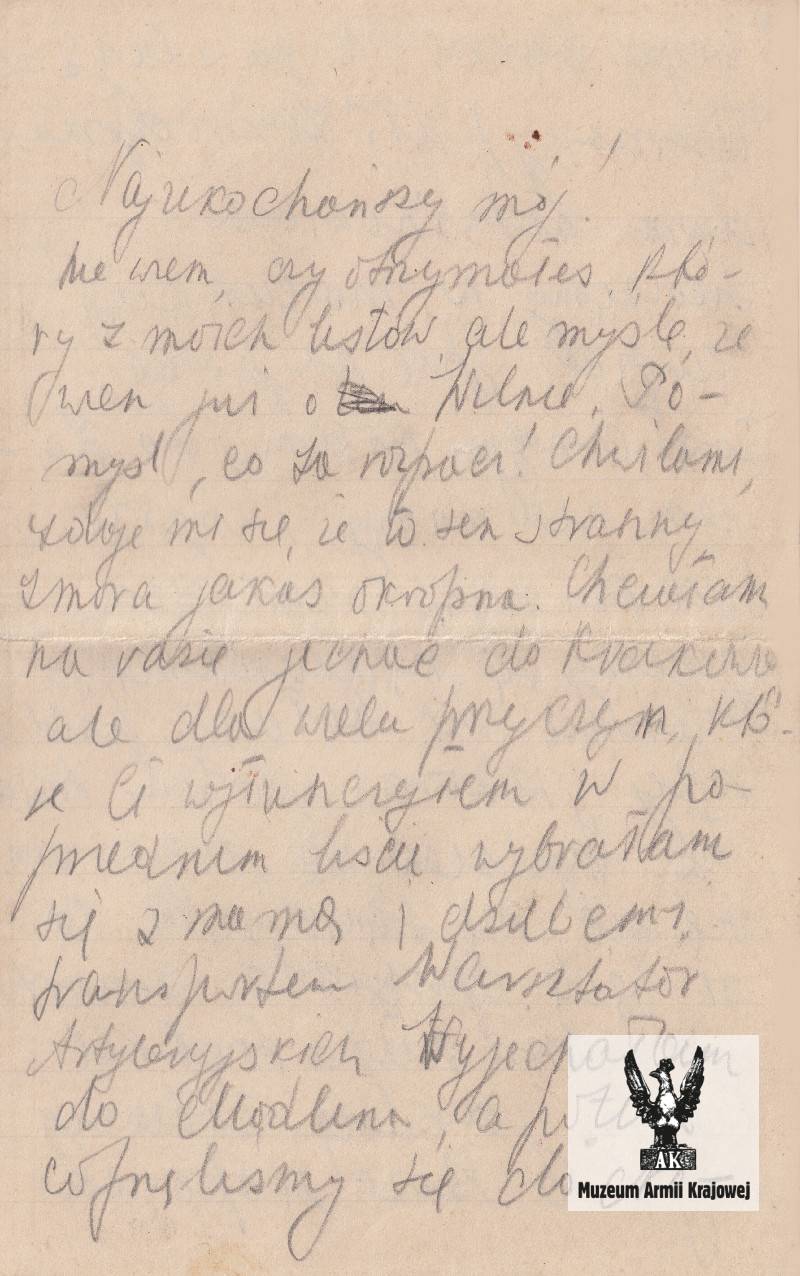 Najukochańszy mój!
Nie wiem, czy otrzymałeś któ-
ry z moich listów, ale myślę, że
wiesz już o Wilnie. Po-
myśl, co za rozpacz! Chwilami,
zdaje mi się, że to sen straszny,
zmora jakaś okropna. Chciałam
na razie jechać do Krakowa
ale dla wielu przyczyn, któ-
re Ci wytłumaczyłam w po-
przednim liście wybrałam
się z mamą i dziećmi
transportem Warsztatów
Artyleryjskich Wyjechałam
do Modlina, a potem
cofnęliśmy się do
AK
Muzeum Armii Krajowej